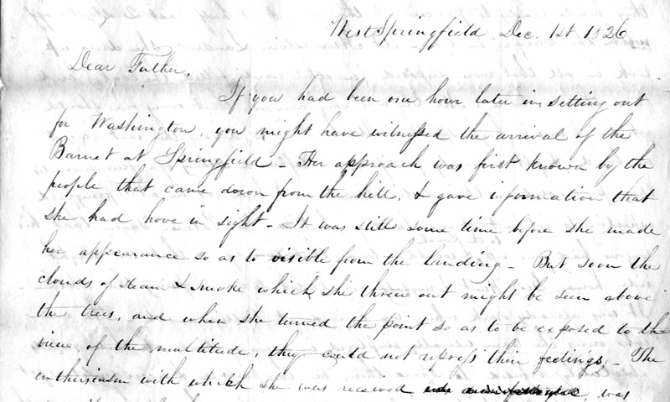 West Springfield Dec. 1st 1826
Dear Father,
If you had been one hour later in setting out
for Washington, you might have witnessed the arrival of the
Barnet at Springfield - Her approach was first known by the
people that came down from the hill, & gave information that
she had hove in sight - It was still some time before she made
her appearance so as to visible from the landing - But soon the
clouds of steam & smoke which she threw out might be seen above
the trees, and when she turned the point so as to be exposed to the
view of the multitude, they could not repress their feelings - The
enthusiasm with which she was received was